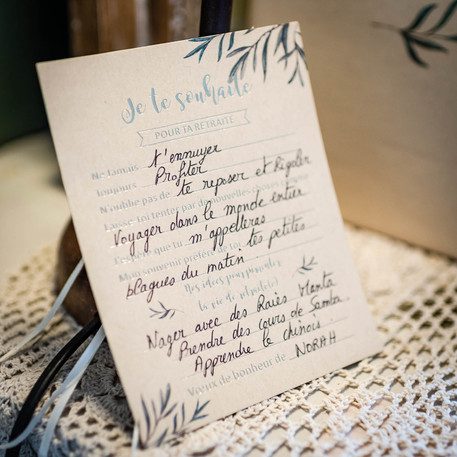 Je te souhaite
POUR TA RETRAITE
Ne jamais t'ennuyer
Toujours Profiter
N'oublie pas de te reposer et Rigoler
Laisse-toi tenter par de nouvelles choses
Voyager dans le monde entier
J'espère que tu m'appelleras
Mon souvenir préféré de toi tes petites
blagues du matin
Des idées pour pimenter
ta vie de retraité(e)
Nager avec des Raies Manta
Prendre des cours de Samba
Apprendre le chinois
Voeux de bonheur de NORAH